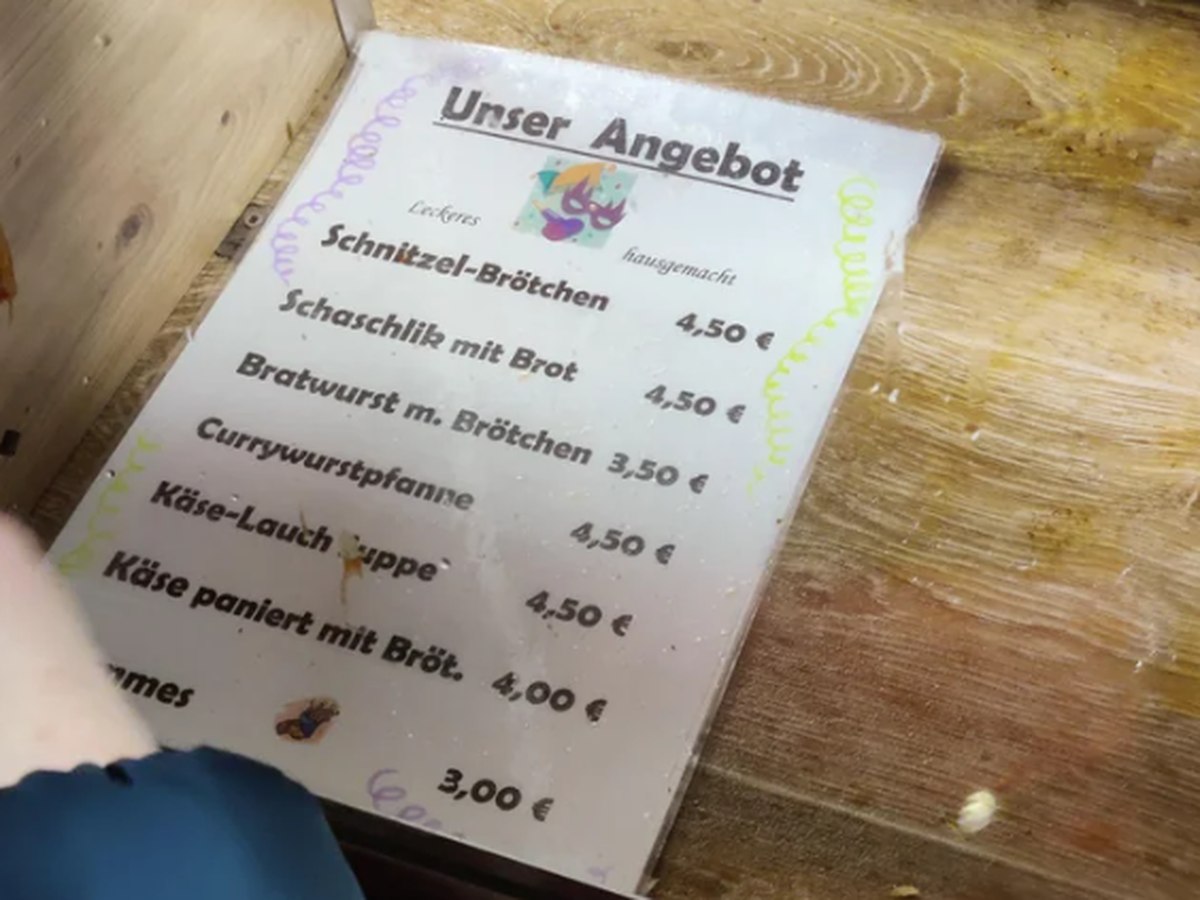 Unser Angebot
Leckeres
hausgemacht
Schnitzel-Brötchen 4,50 €
Schaschlik mit Brot 4,50 €
Bratwurst m. Brötchen 3,50 €
Currywurstpfanne 4,50 €
Käse-Lauch uppe 4,50 €
Käse paniert mit Bröt. 4,00 €
mmes 3,00 €